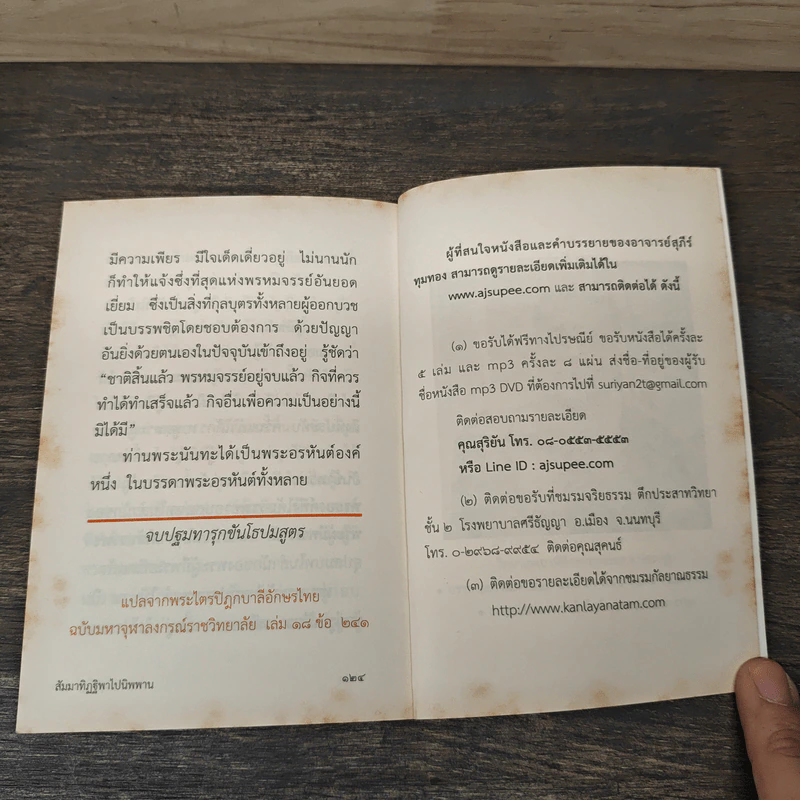 มีความเพียร มีใจเด็ดเดี่ยวอยู่ ไม่นานนัก
ก็ทำให้แจ้งซึ่งที่สุดแห่งพรหมจรรย์อันยอด
เยี่ยม ซึ่งเป็นสิ่งที่กุลบุตรทั้งหลายผู้ออกบวช
เป็นบรรพชิตโดยชอบต้องการ ด้วยปัญญา
อันยิ่งด้วยตนเองในปัจจุบันเข้าถึงอยู่ รู้ชัดว่า
“ชาติสิ้นแล้ว พรหมจรรย์อยู่จบแล้ว กิจที่ควร
ทำได้ทำเสร็จแล้ว กิจอื่นเพื่อความเป็นอย่างนี้
มิได้มี”
ท่านพระนันทะได้เป็นพระอรหันต์องค์
หนึ่ง ในบรรดาพระอรหันต์ทั้งหลาย
จบปฐมทารุกขันโธปมสูตร
แปลจากพระไตรปิฎกบาลีอักษรไทย
ฉบับมหาจุฬาลงกรณ์ราชวิทยาลัย เล่ม ๑๘ ข้อ ๒๔๑
สัมมาทิฏฐิพาไปนิพพาน ๑๒๔
ผู้ที่สนใจหนังสือและคำบรรยายของอาจารย์สุภีร์
ทุมทอง สามารถดูรายละเอียดเพิ่มเติมได้ใน
www.ajsupee.com และ สามารถติดต่อได้ ดังนี้
(๑) ขอรับได้ฟรีทางไปรษณีย์ ขอรับหนังสือได้ครั้งละ
๕ เล่ม และ mp3 ครั้งละ ๘ แผ่น ส่งชื่อ-ที่อยู่ของผู้รับ
ชื่อหนังสือ mp3 DVD ที่ต้องการไปที่ suriyan2t@gmail.com
ติดต่อสอบถามรายละเอียด
คุณสุริยัน โทร. ๐๘-๐๕๕๓-๕๕๕๓
หรือ Line ID : ajsupee.com
(๒) ติดต่อขอรับที่ชมรมจริยธรรม ตึกประสาทวิทยา
ชั้น ๒ โรงพยาบาลศรีธัญญา อ.เมือง จ.นนทบุรี
โทร. ๐-๒๙๖๘-๙๙๕๔ ติดต่อคุณสุคนธ์
(๓) ติดต่อขอรายละเอียดได้จากชมรมกัลยาณธรรม
http://www.kanlayanatam.com